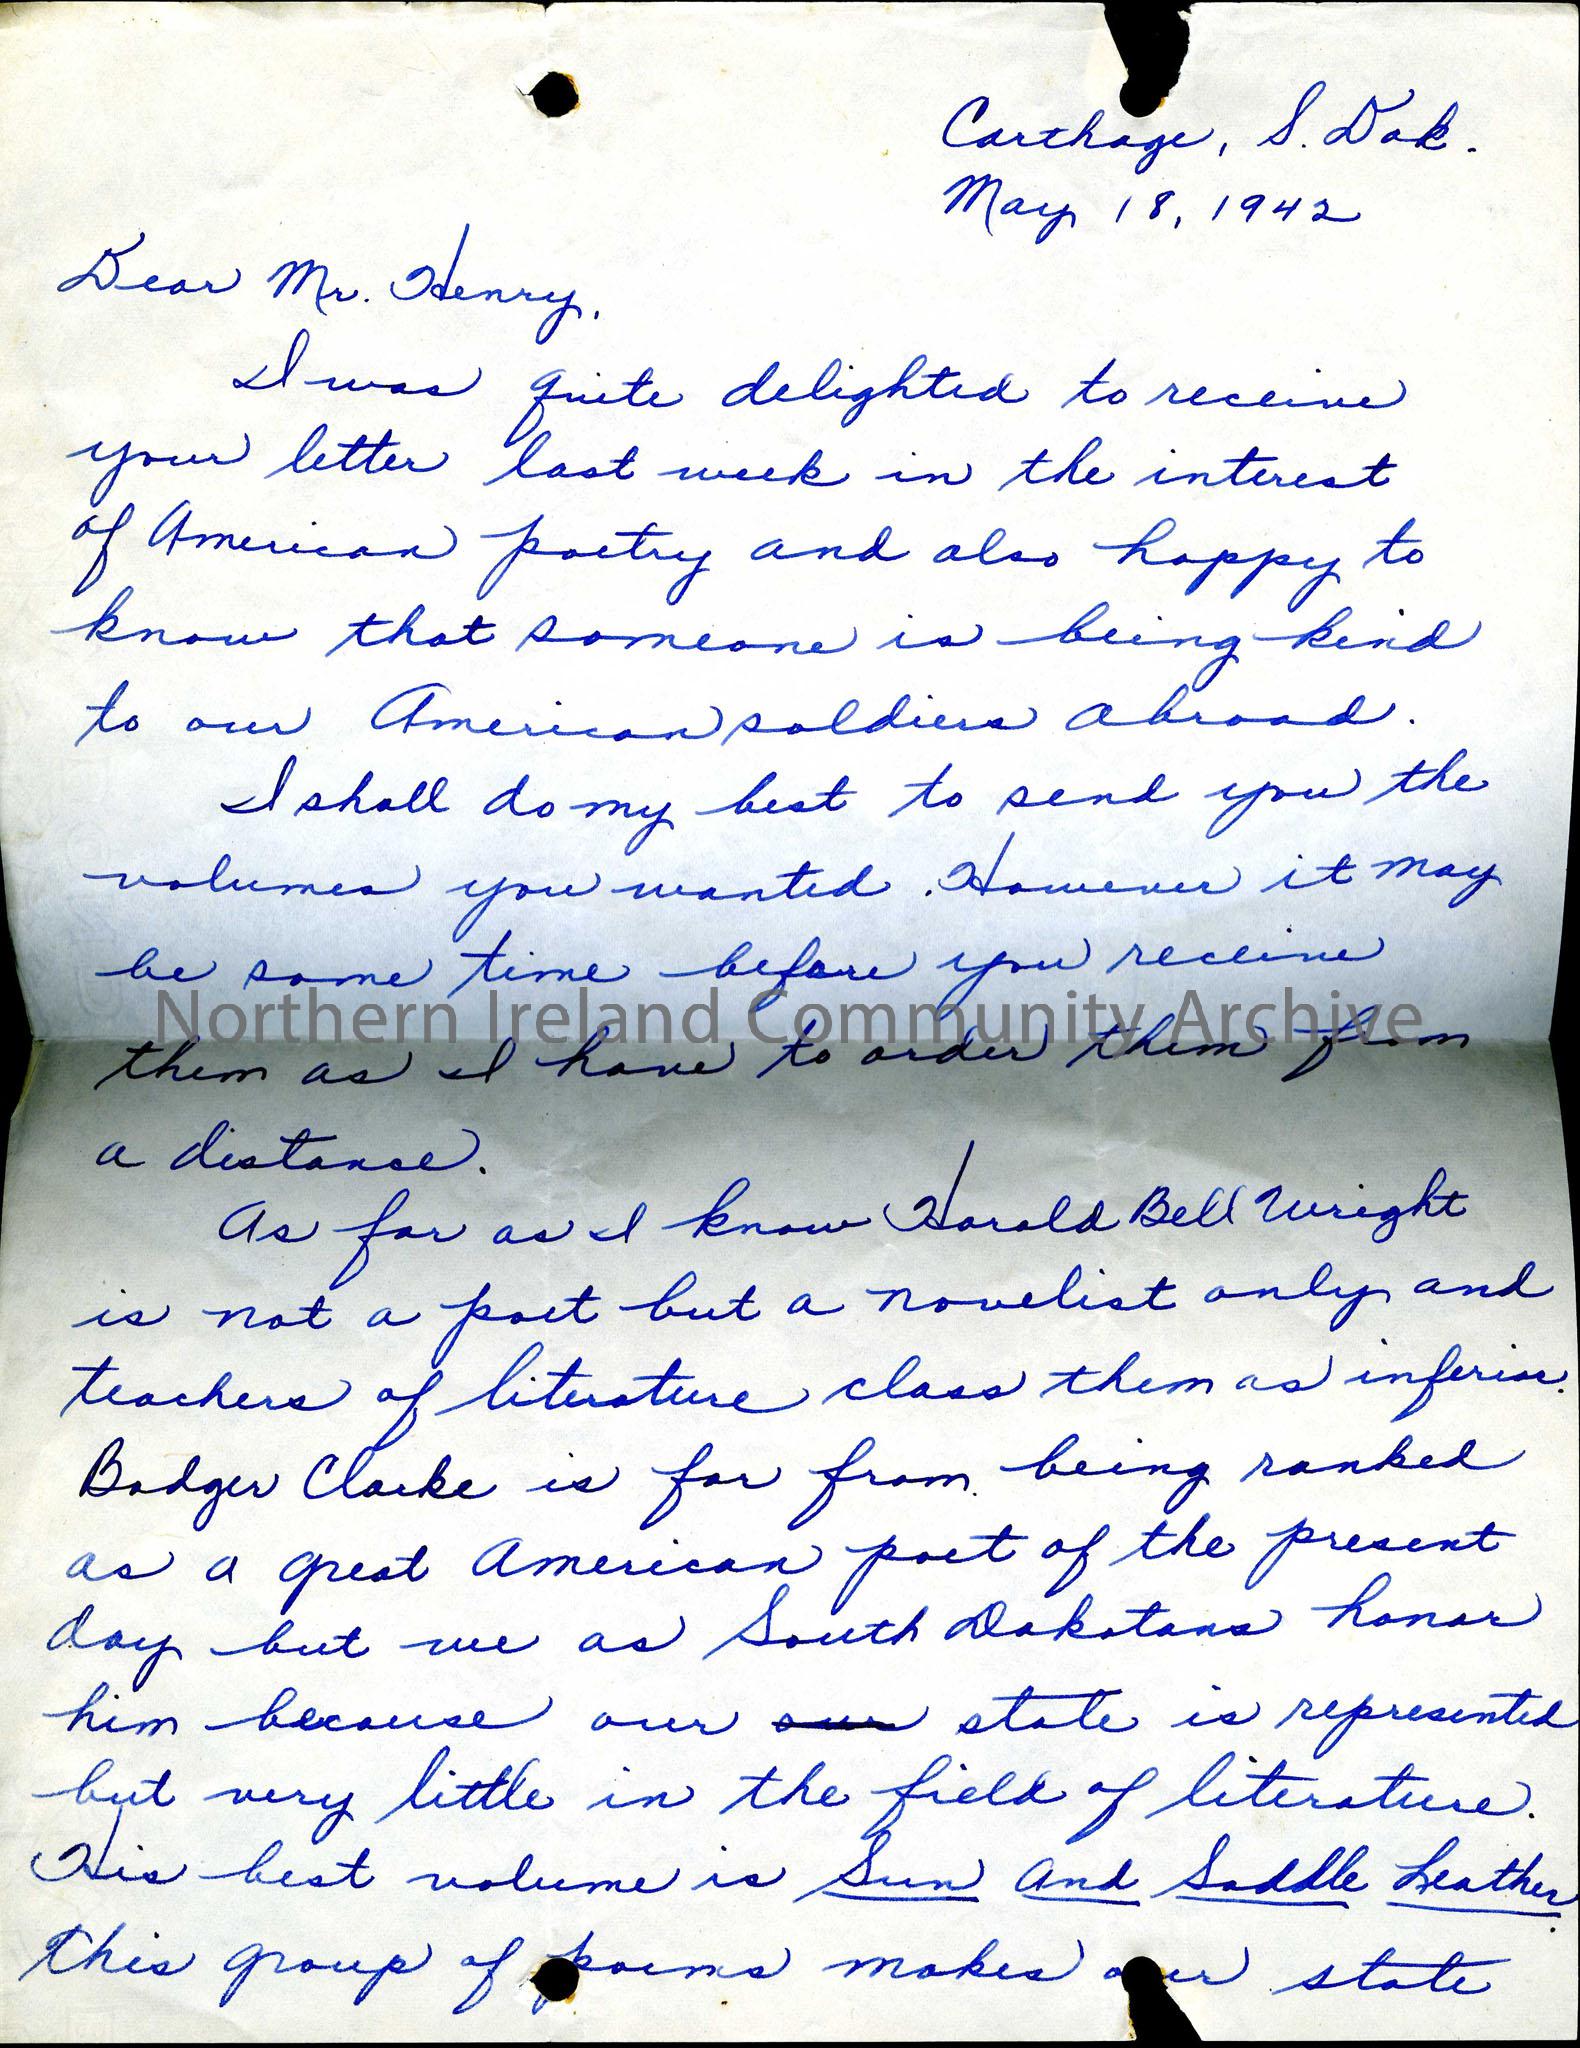 Carthage, S. Dak.
May 18, 1942
Dear Mr. Henry,
I was quite delighted to receive
your letter last week in the interest
of American poetry and also happy to
know that someone is being kind
to our American soldiers abroad.
I shall do my best to send you the
volumes you wanted. However it may
be some time before you receive
Northern Ireland Community Archive
them as I have to order them from
a distance.
As far as I know Harold Bell Wright
is not a poet but a novelist only and
teachers of literature class them as inferior.
Badger Clarke is far from being ranked
as a great American poet of the present
day but we as South Dakotans honor
him because our our state is represented
but very little in the field of literature.
His best volume is Sun And Saddle Leather.
This group of poems makes our state